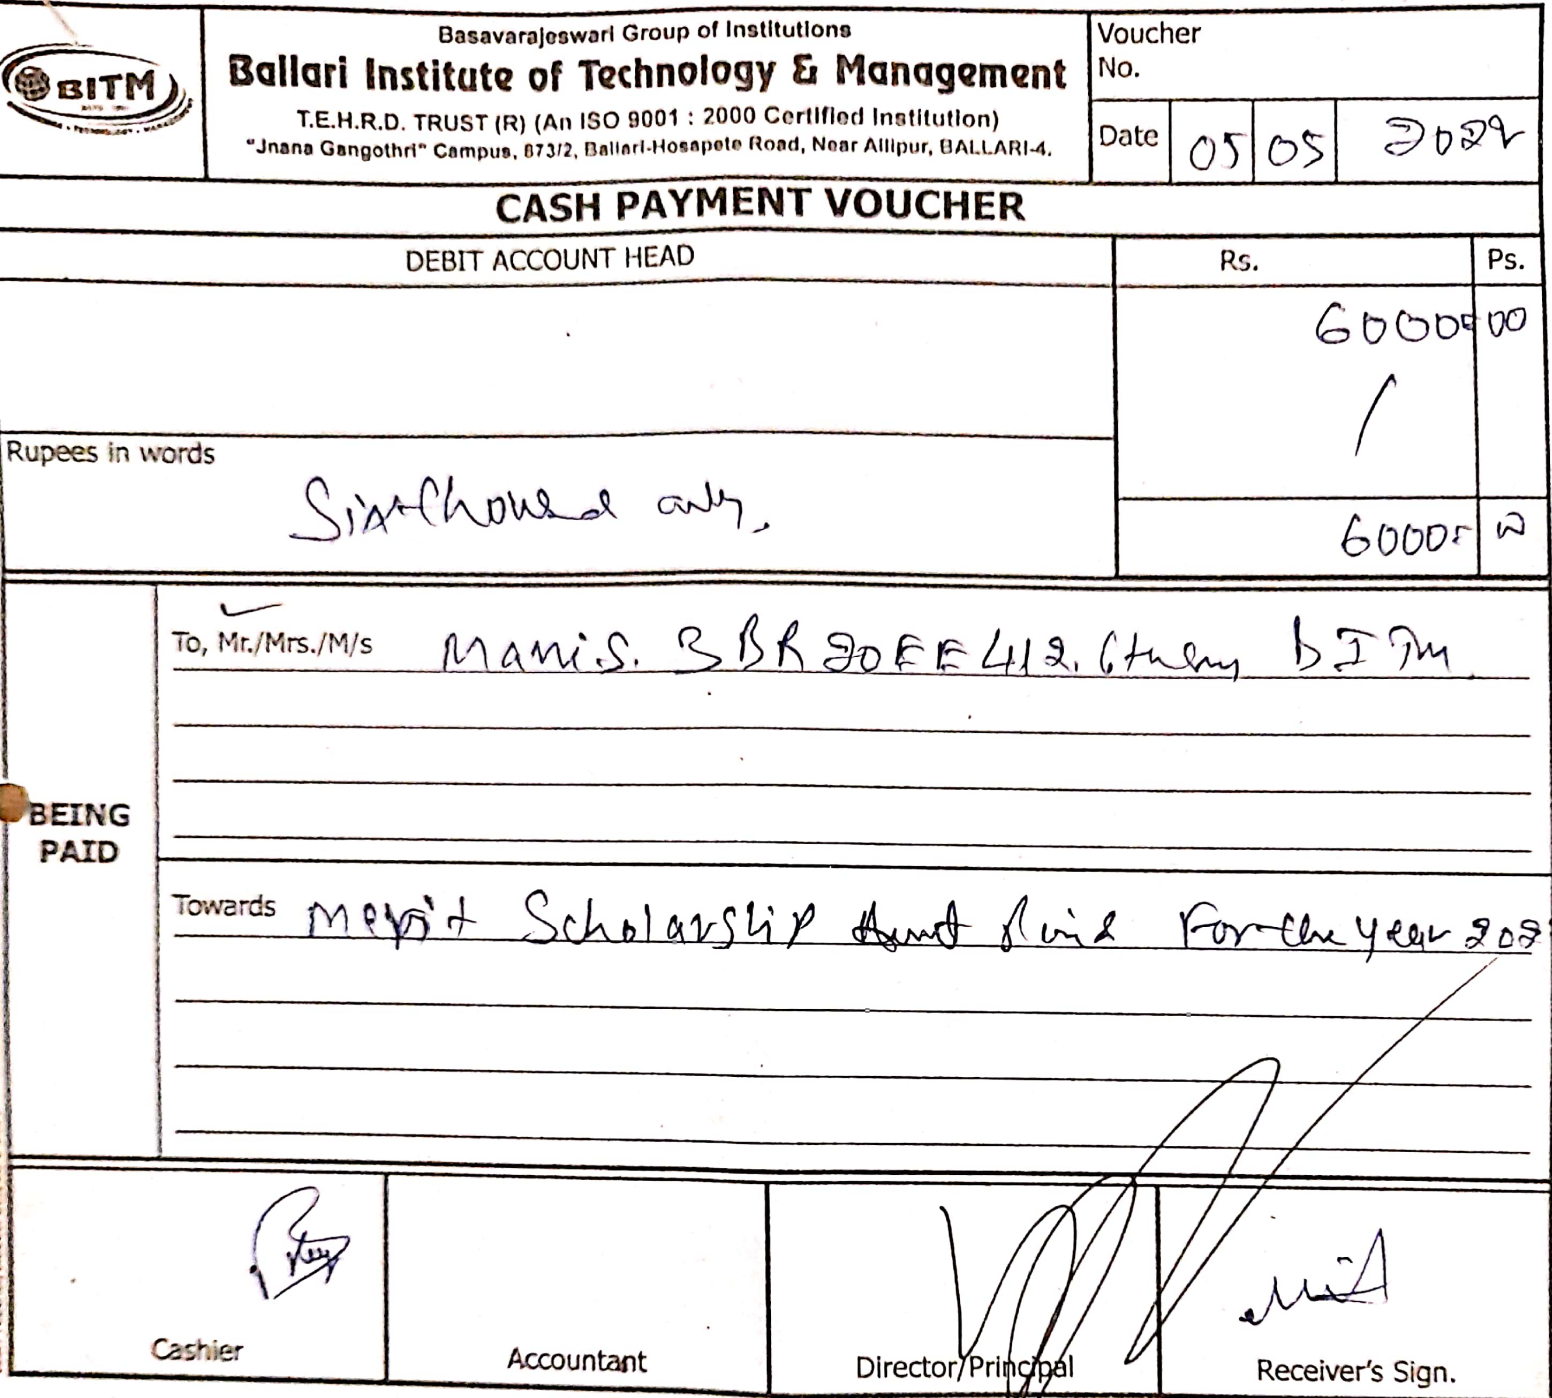 Basavarajeswari Group of Institutions
BITM
Ballari Institute of Technology & Management
T.E.H.R.D. TRUST (R) (An ISO 9001 : 2000 Certified Institution)
"Jnana Gangothri" Campus, 873/2, Ballari-Hosapete Road, Near Allipur, BALLARI-4.
Voucher
No.
Date 05 05 2022
CASH PAYMENT VOUCHER
DEBIT ACCOUNT HEAD Rs. Ps.
6000 00
Rupees in words
Six thousand only.
6000 00
To, Mr./Mrs./M/s Mani.S. 3BR20EE412. BITM
BEING
PAID
Towards Merit Scholarship Amt For the year 202
Cashier
Accountant
Director/Principal
Receiver's Sign.